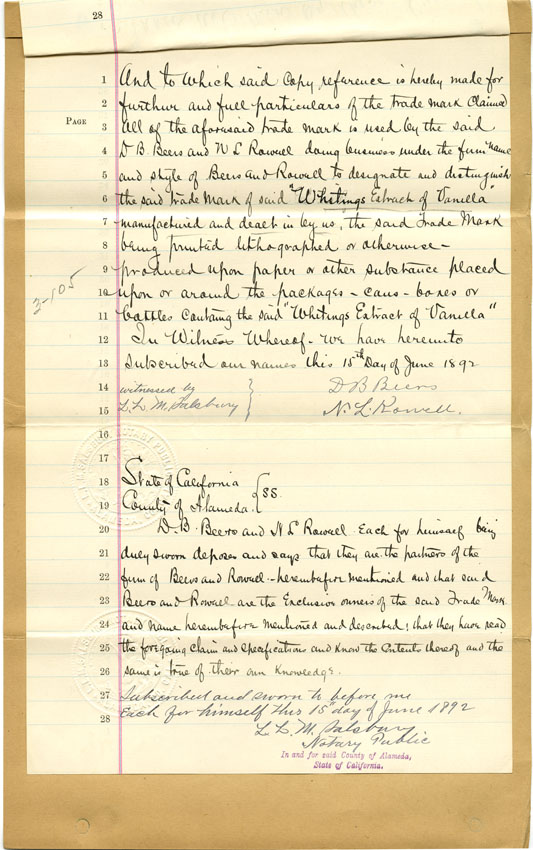 28
1 And to Which said Copy reference is hereby made for
2 further and full particulars of the trade mark Claimed
PAGE
3 All of the aforesaid trade mark is used by the said
4 D B Beers and N L Rowell doing business under the firm name
5 and style of Beers and Rowell to designate and distinguish
6 the said trade Mark of said "Whitings Extract of Vanilla"
7 manufactured and dealt in by us, the said Trade Mark
8 being printed lithographed or otherwise -
9 produced upon paper or other substance placed
10 upon or around the packages - cans - boxes or
3-105
11 bottles containg the said "Whitings Extract of Vanilla"
12 In Witness Whereof - we have hereunto
13 subscribed our names this 15th Day of June 1892
14 witnessed by } D B Beers
15 L. L. M. Salsbury N. L. Rowell.
16
17
18 State of California
19 County of Alameda. } SS.
20 D. B. Beers and N L Rowell Each for himself being
21 duly sworn deposes and says that they are the partners of the
22 firm of Beers and Rowell - hereinbefore mentioned and that said
23 Beers and Rowell are the Exclusive owners of the said Trade Mark
24 and name hereinbefore mentioned and described; that they have read
25 the foregoing claim and specifications and know the contents thereof and the
26 same is true of their own knowledge.
27 Subscribed and sworn to before me
28 Each for himself this 15" day of June 1892
L. L. M. Salsbury
Notary Public
In and for said County of Alameda,
State of California.